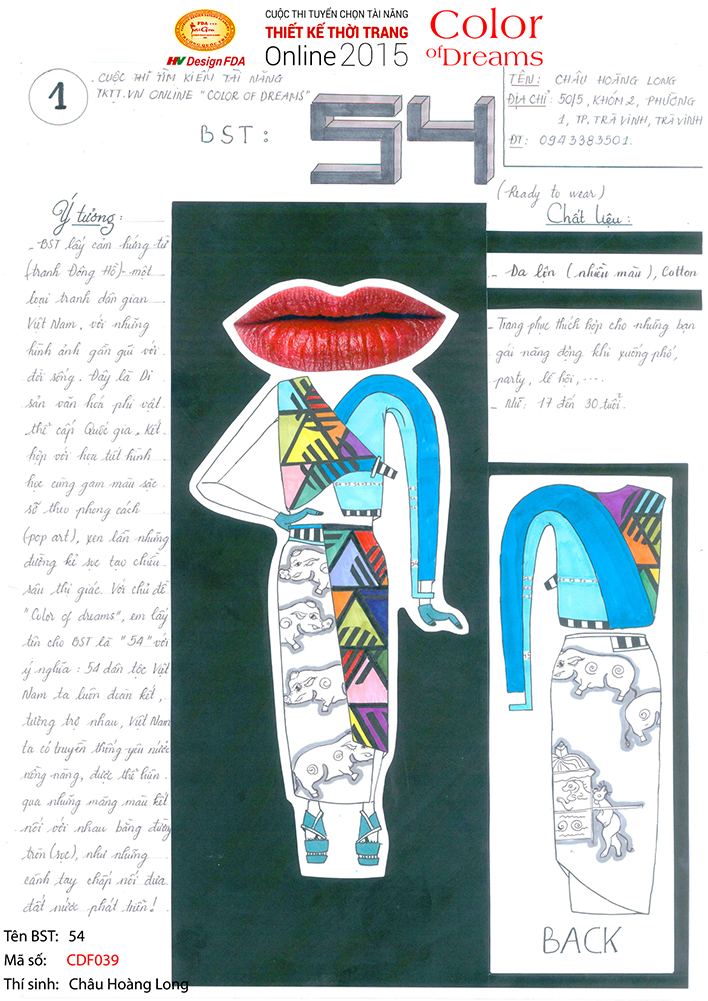 FDA
HV Design FDA
CUỘC THI TUYỂN CHỌN TÀI NĂNG
THIẾT KẾ THỜI TRANG
Online 2015
Color
of Dreams
1
CUỘC THI TÌM KIẾM TÀI NĂNG
TKTT.VN ONLINE "COLOR OF DREAMS"
BST: 54
TÊN: CHÂU HOÀNG LONG
ĐỊA CHỈ: 50/5, KHÓM 2, PHƯỜNG
1, TP. TRÀ VINH, TRÀ VINH
ĐT: 0943383501.
(Ready to wear)
Ý tưởng:
- BST lấy cảm hứng từ
(tranh Đông Hồ) - một
loại tranh dân gian
Việt Nam, với những
hình ảnh gần gũi với
đời sống. Đây là Di
sản văn hoá phi vật
thể cấp Quốc gia. Kết
hợp với họa tiết hình
học cùng gam màu sặc
sỡ theo phong cách
(pop art), xen lẫn những
đường kẻ sọc tạo chiều
sâu thị giác. Với chủ đề
"Color of dreams", em lấy
tên cho BST là "54" với
ý nghĩa: 54 dân tộc Việt
Nam ta luôn đoàn kết,
tương trợ nhau, Việt Nam
ta có truyền thống yêu nước
nồng nàn, được thể hiện
qua những mảng màu kết
nối với nhau bằng đường
trơn (sọc), như những
cánh tay chắp nối đưa
đất nước phát triển!
Chất liệu:
- Da lộn (nhiều màu), Cotton
- Trang phục thích hợp cho những bạn
gái năng động khi xuống phố,
party, lễ hội, ...
- Nữ: 17 đến 30 tuổi.
BACK
Tên BST: 54
Mã số: CDF039
Thí sinh: Châu Hoàng Long